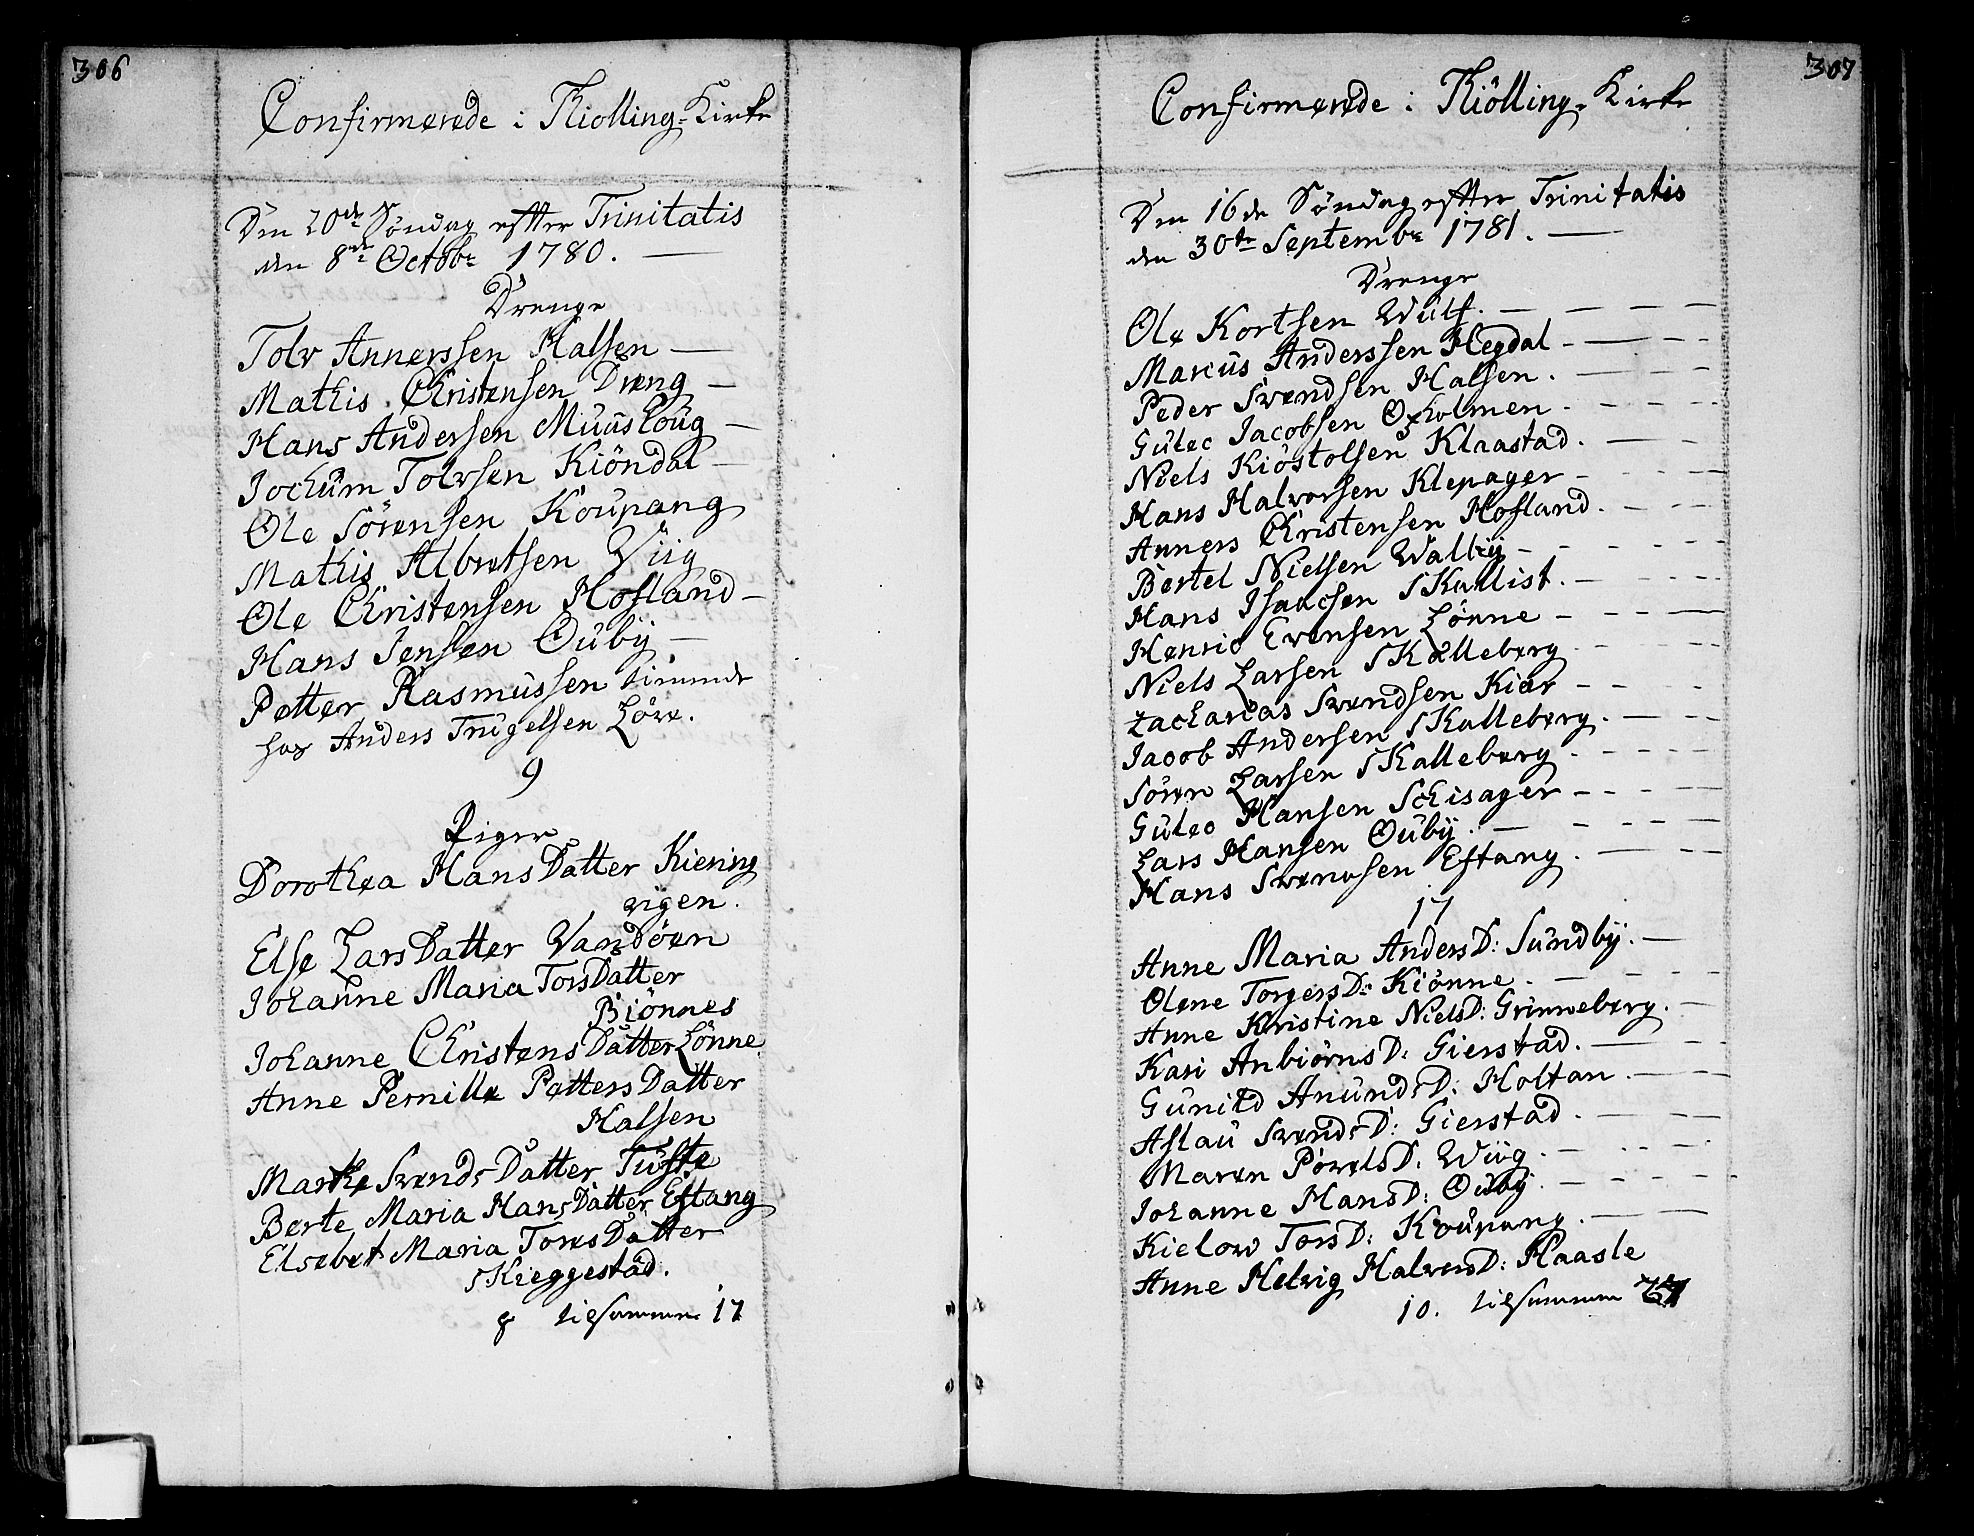 306
Confirmerede i Kiölling-Kirke
Den 20de Söndag efter Trinitatis
den 8de Octobr 1780.
Drenge
Tolv Annerssen Halsen
Mathis Christensen Dreng
Hans Anderssen Muusloug
Jochum Tolvsen Kiöndal
Ole Sörensen Koupang
Mathis Albretsen Viig
Ole Christensen Hofland
Hans Jensen Ouby
Petter Rasmussen tienende
hos Anders Trugelsen Löve.
9
Piger
Dorothea HansDatter Kiening
vigen.
Else LarsDatter Vandöen
Johanne Maria TorsDatter
Biönnes
Johanne ChristensDatter Lönne
Anne Pernille PettersDatter
Halsen
Marthe SvendsDatter Tufte
Berte Maria HansDatter Eftang
Elsebet Maria ToresDatter
Skieggestad.
8 tilsammen 17
307
Confirmerede i Kiölling-Kirke
Den 16de Söndag efter Trinitatis
den 30te Septembr 1781.
Drenge
Ole Kortsen Wulf.
Marcus Anderssen Hegdal
Peder Svendsen Halsen.
Gulec Jacobsen Oxholmen
Niels Kiöstolsen Klaastad.
Hans Halvorsen Klepager
Anners Christensen Hofland.
Bertel Nielsen Walby
Hans Isaacsen Skallist.
Henric Evensen Lönne
Niels Larsen Skalleberg
Zacharias Svendsen Kiær
Jacob Andersen Skalleberg.
Sören Larsen Skalleberg
Gulec Hansen Schisager
Lars Hansen Ouby.
Hans Svenosen Eftang.
17
Anne Maria AndersD: Sundby.
Olene TorgersD: Kiönne.
Anne Kristine NielsD: Grinneberg.
Kari AnbiörnsD: Gierstad.
Gunild AnundsD: Holtan
Aslau SvendsD: Gierstad.
Maren PovelsD. Wiig.
Johanne HansD: Ouby.
Kielow TorsD: Koupang.
Anne Helvig HalvorsD: Haasle
10. tilsammen 27